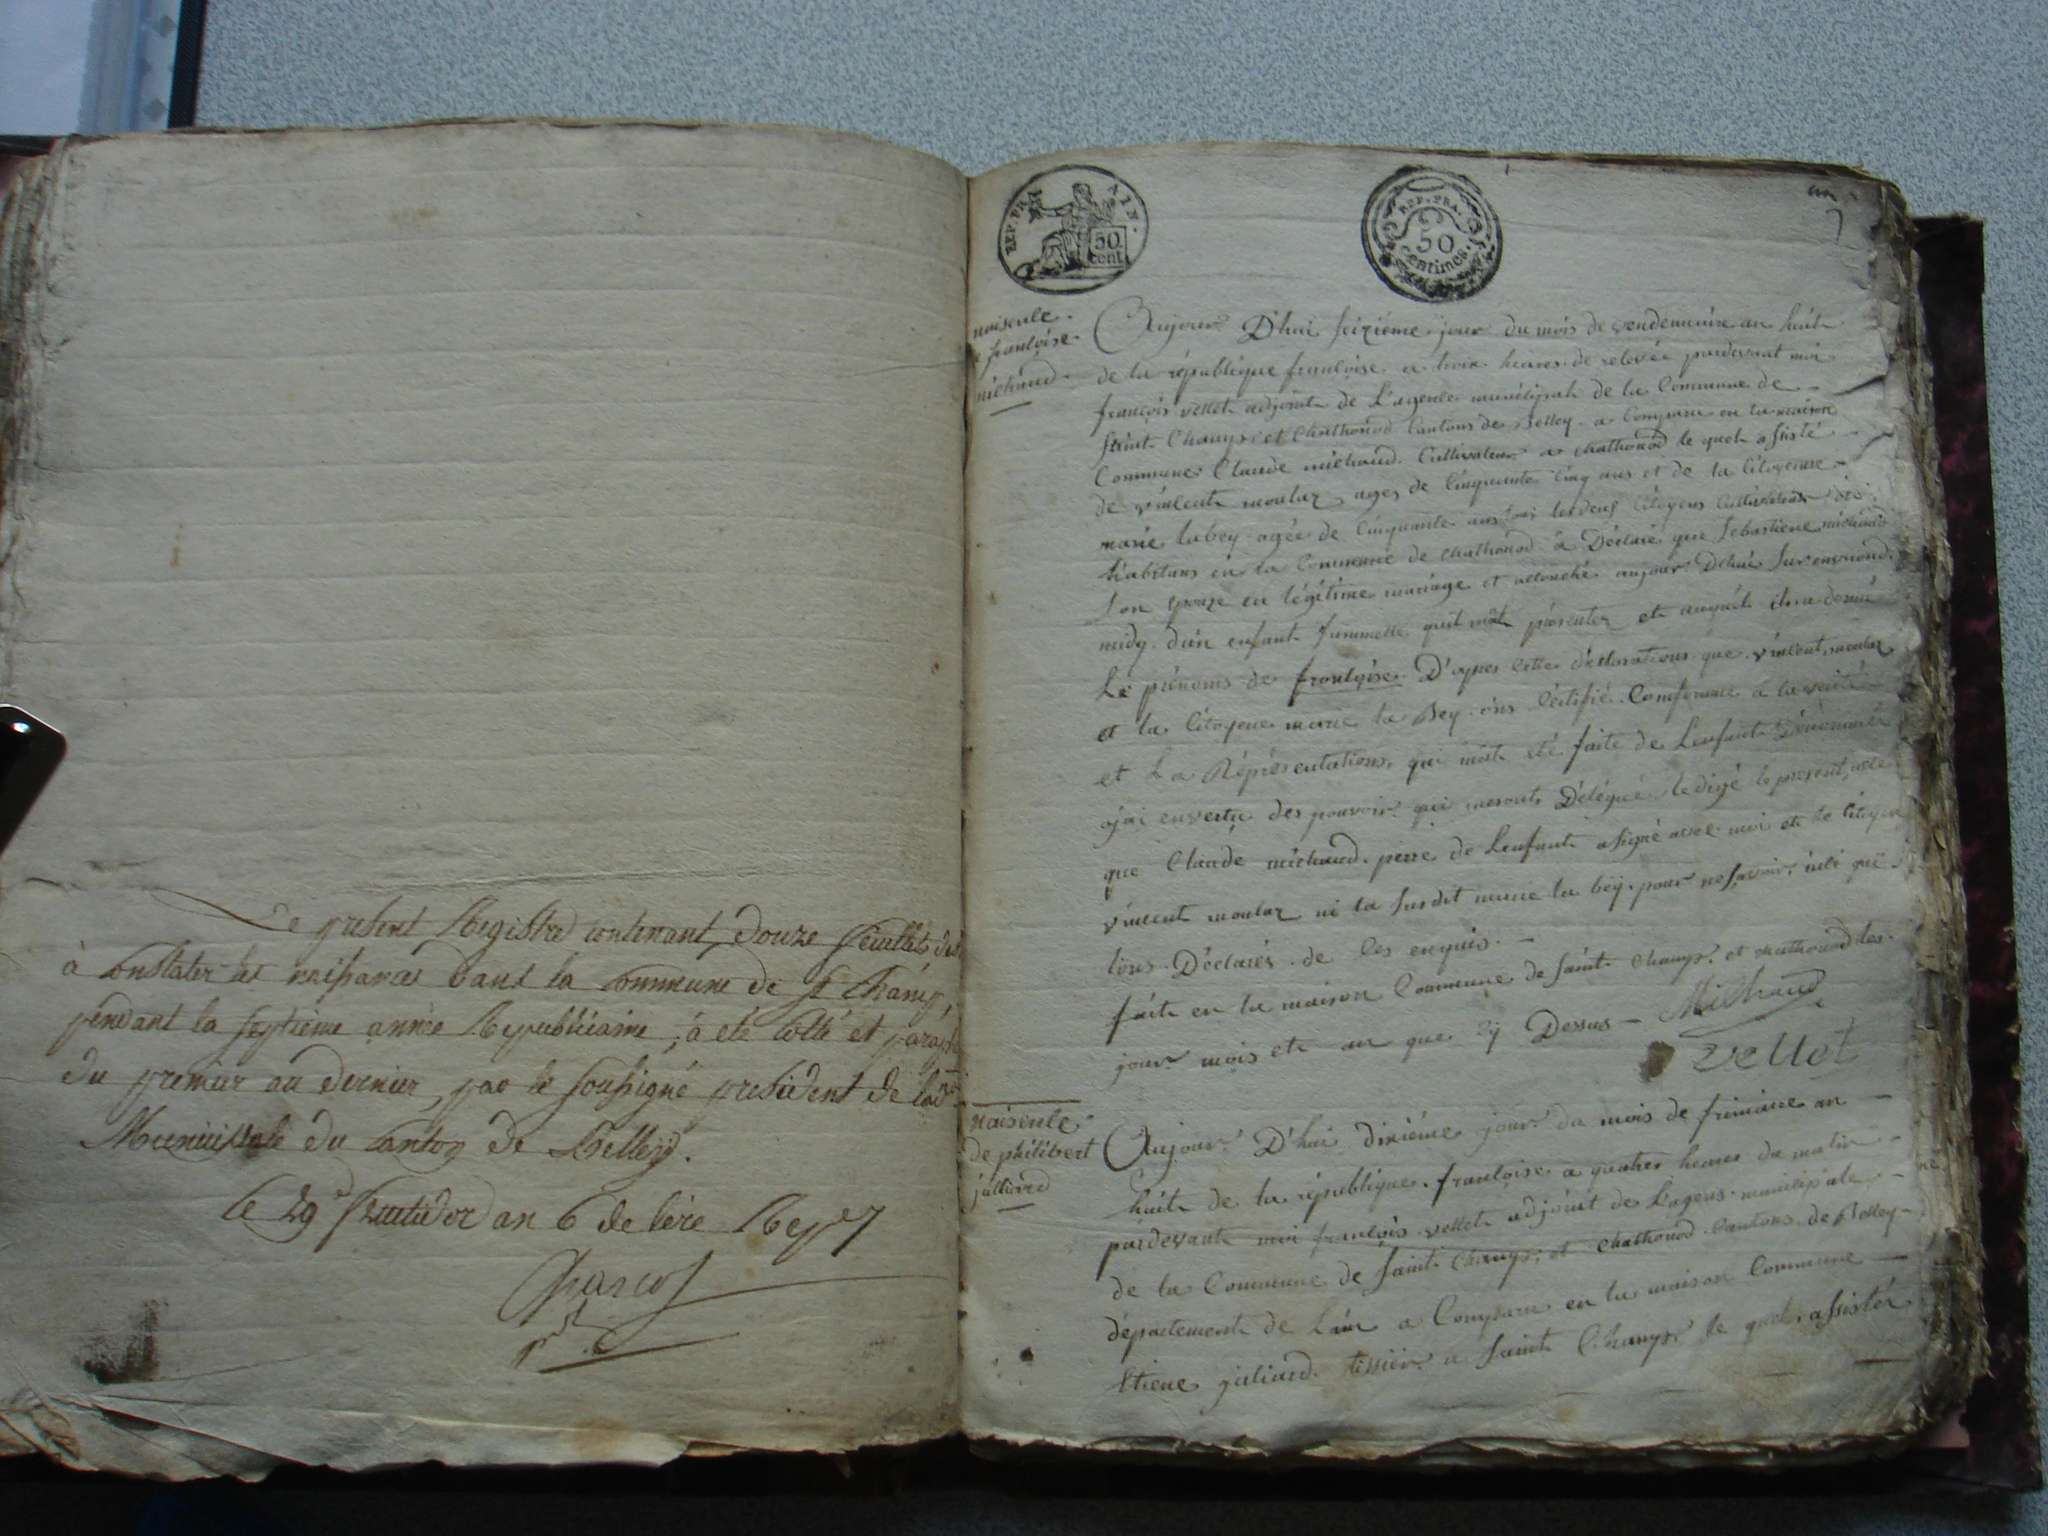 Le present Registre contenant douze feuillets
à constater les naissances dans la commune de St Champ,
pendant la septieme année Republicaine, à eté cotté et paraphé
du premier au dernier, par le soussigné president de
Municipale du Canton de Belley.
Le 29 fructidor an 6 de l'ère
REP. FRA
AIN.
50
cent
REP. FRA.
50
Centimes.
naisence
françoise
michaud
Aujour D'hui seizieme jour du mois de vendemiaire an huit
de la république françoise a trois heures de relevée pardevant moi
françois vellet adjoint de L'agence municipale de la Commune de
Saint Champs et Chathonod Cantons de Belley a Comparu en la maison
Commune Claude michaud Cultivateur a chathonod le quel assisté
de vincent moulaz ages de Cinquante Cinq ans et de la Citoyenne
marie labey agée de Cinquante ans les deux Citoyens Cultivateurs
habitans en la Commune de chathonod à Déclaré que Sebastiene michaud
son epouze en légitime mariage et acouché aujour D'hui sur
midy d'un enfant fummelle quil mat présenter et auquel il a donné
Le prénoms de françoise D'apres Cette déclarations que vincent moulaz
et la Citoyene marie la Bey ons Certifié Conforme á la verité
et La Réprésentations qui mat été faite de Lenfant dénommée
ajai envertu des pouvoir qui mesont Délégué redigé le present acte
que Claude michaud perre de Lenfant asigné avec moi et le Citoyen
vincent moulaz ni la susdit marie la bey pour ne savoir
Déclarés de Ces enquis.
fait en la maison Commune de Saint Champs et chathonod les
jour mois et an que cy Dessus
Michaud
vellet
naisence
de philibert
julliard
Aujour D'hui dixiéme jour du mois de frimaire an
huit de la république françoise a quatres heures du matin
pardevant moi françois vellet adjoint de L'agens municipale
de la Commune de Saint Champs et Chathonod Cantons de Belley
département de L'ain a Comparu en la maison Commune
Etiene juliard tissier a Saint Champs le quel assister